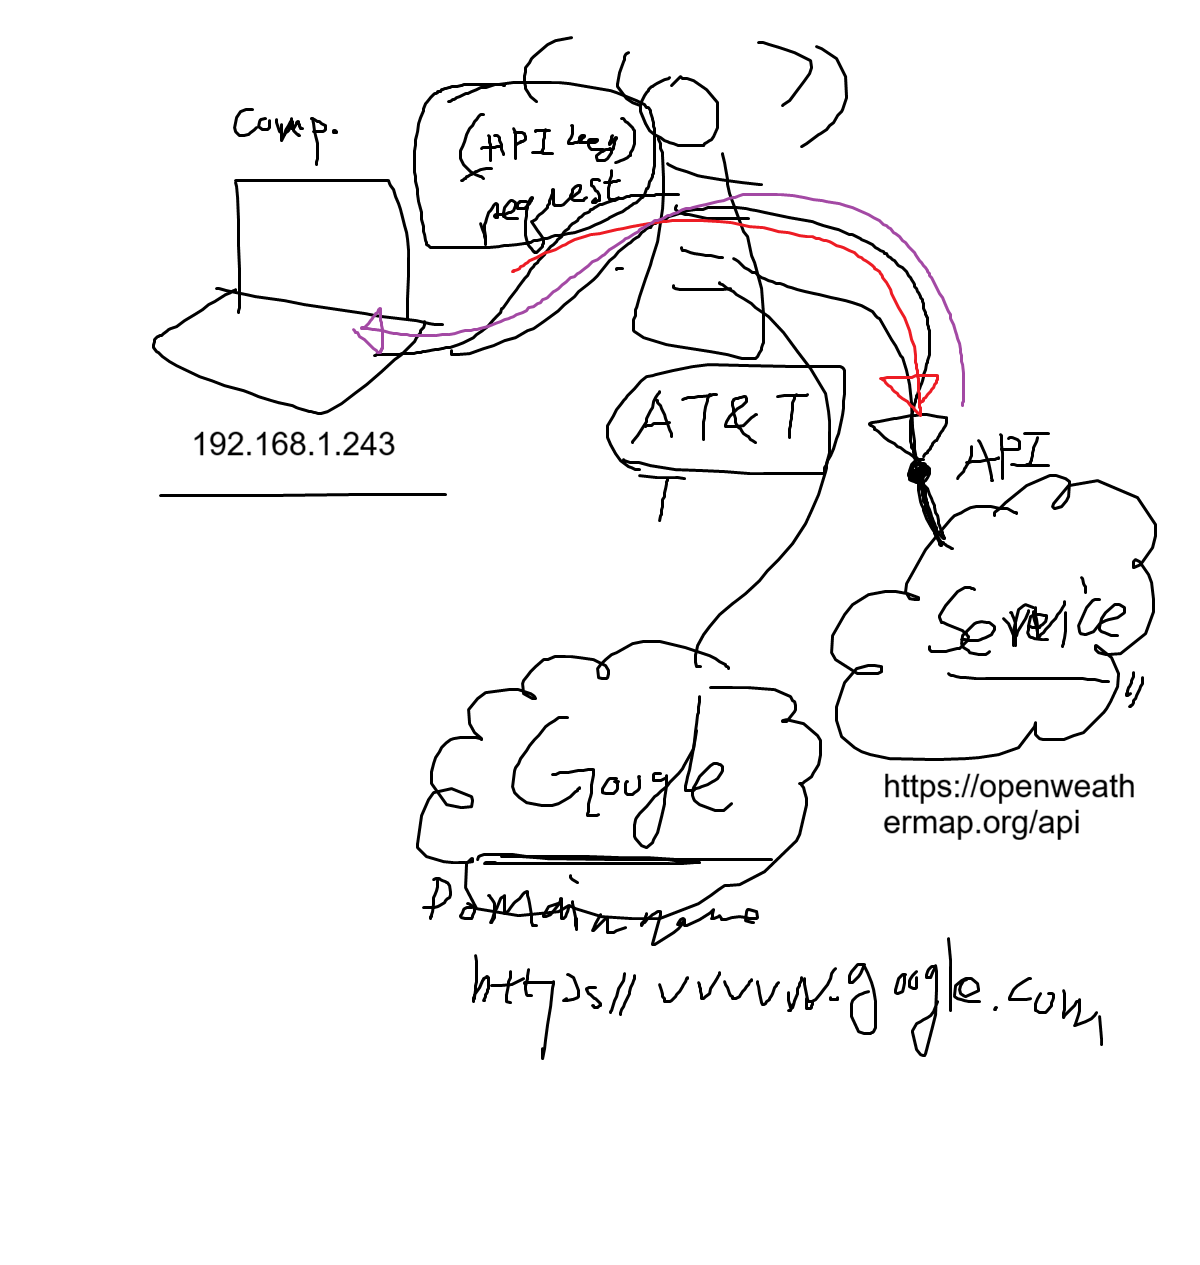 Comp.
(API key)
request
192.168.1.243
AT&T
T
API
Service
https://openweath
ermap.org/api
Google
Domain name
https// www.google.com